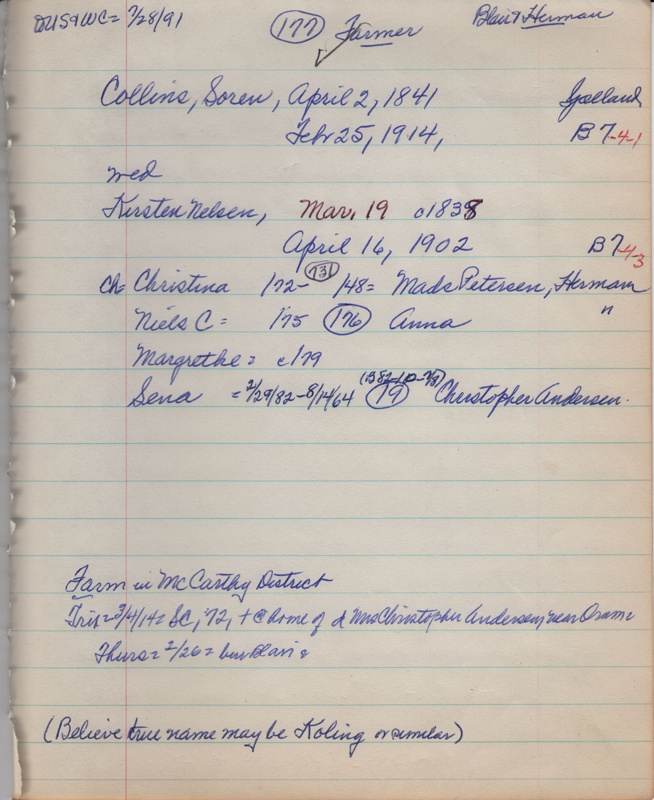 DUS&WC = 7/28/91 (177) Farmer Blair & Herman
Collins, Soren, April 2, 1841 Jylland
Febr 25, 1914, B7-4-1
wed
Kirsten Nelsen, Mar. 19 c1838
April 16, 1902 B7-4-3
ch= Christina /72- (731) /48= Mads Petersen, Hermann
Niels C = /75 (176) Anna "
Margrethe = c/79
Sena = 2/29/82-8/14/64 (19) (B82-10-7/8) Christopher Andersen.
Farm in McCarthy District
Trib= 3/4/14= SC, 72, + @ home of d Mrs Christopher Andersen, near Orum
Thurs= 2/26= bur Blair
(Believe true name may be Koling or similar)